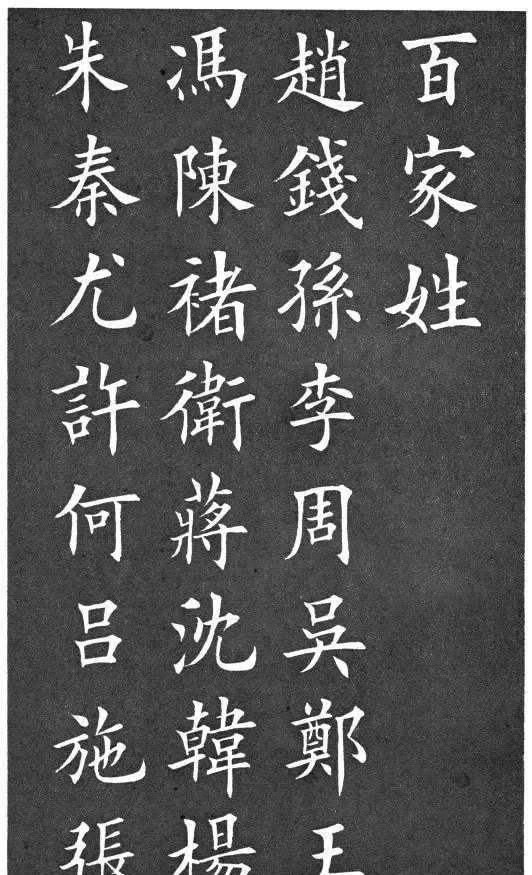 百家姓
趙錢孫李周吳鄭王
馮陳褚衛蔣沈韓楊
朱秦尤許何吕施張